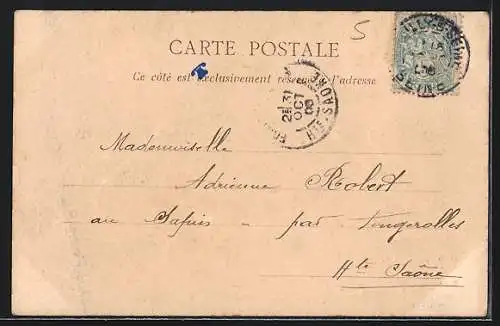 5
CARTE POSTALE
Ce côté est exclusivement réservé à l'adresse
31
OCT
Hte SAONE
SEINE
Mademoiselle
Adrienne Robert
au Sapuis - par Fougerolles
Hte Saône